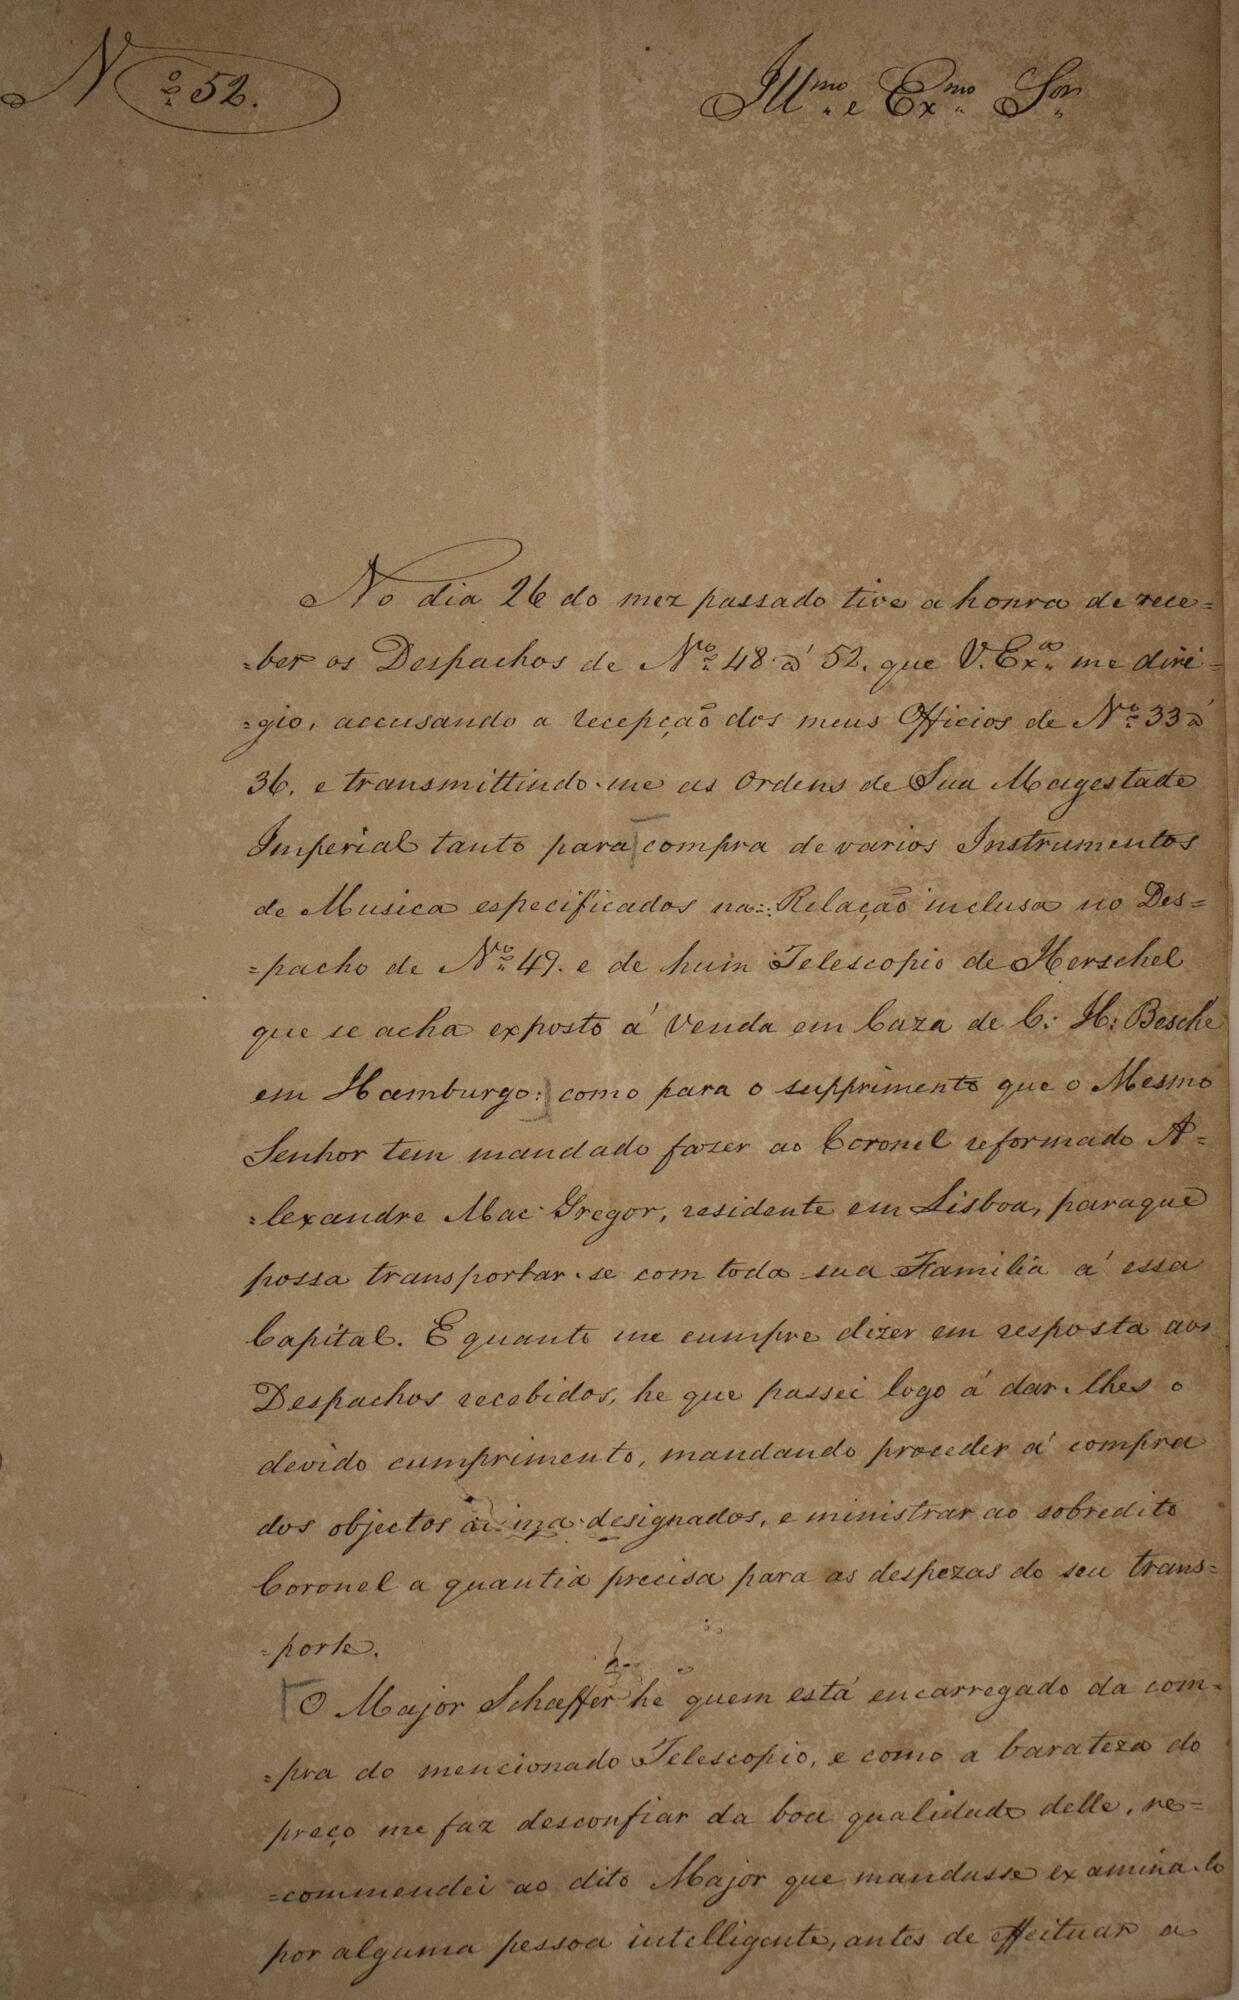 Nº 52.
Illmo e Exmo Sor
No dia 26 do mez passado tive a honra de rece=
=ber os Despachos de Nº 48 á 52. que V. Exa me diri=
=gio, accusando a recepção dos meus Officios de Nº 33 á
36. e transmittindo-me as Ordens de Sua Magestade
Imperial tanto para compra de varios Instrumentos
de Musica especificados na Relação inclusa no Des=
=pacho de Nº 49. e de hum Telescopio de Herschel
que se acha exposto á venda em Caza de C: H: Besché
em Hamburgo: como para o supprimento que o Mesmo
Senhor tem mandado fazer ao Coronel reformado A=
=lexandre Mac-Gregor, residente em Lisboa, paraque
possa transportar-se com toda sua Familia á essa
Capital. E quanto me cumpre dizer em resposta aos
Despachos recebidos, he que passei logo á dar-lhes o
devido cumprimento, mandando proceder á compra
dos objectos acima designados, e ministrar ao sobredito
Coronel a quantia precisa para as despezas do seu trans=
=porte.
O Major Schæffer he quem está encarregado da com=
=pra do mencionado Telescopio, e como a barateza do
preço me faz desconfiar da boa qualidade delle, re=
=commendei ao dito Major que mandasse examina-lo
por alguma pessoa intelligente, antes de effeituar a